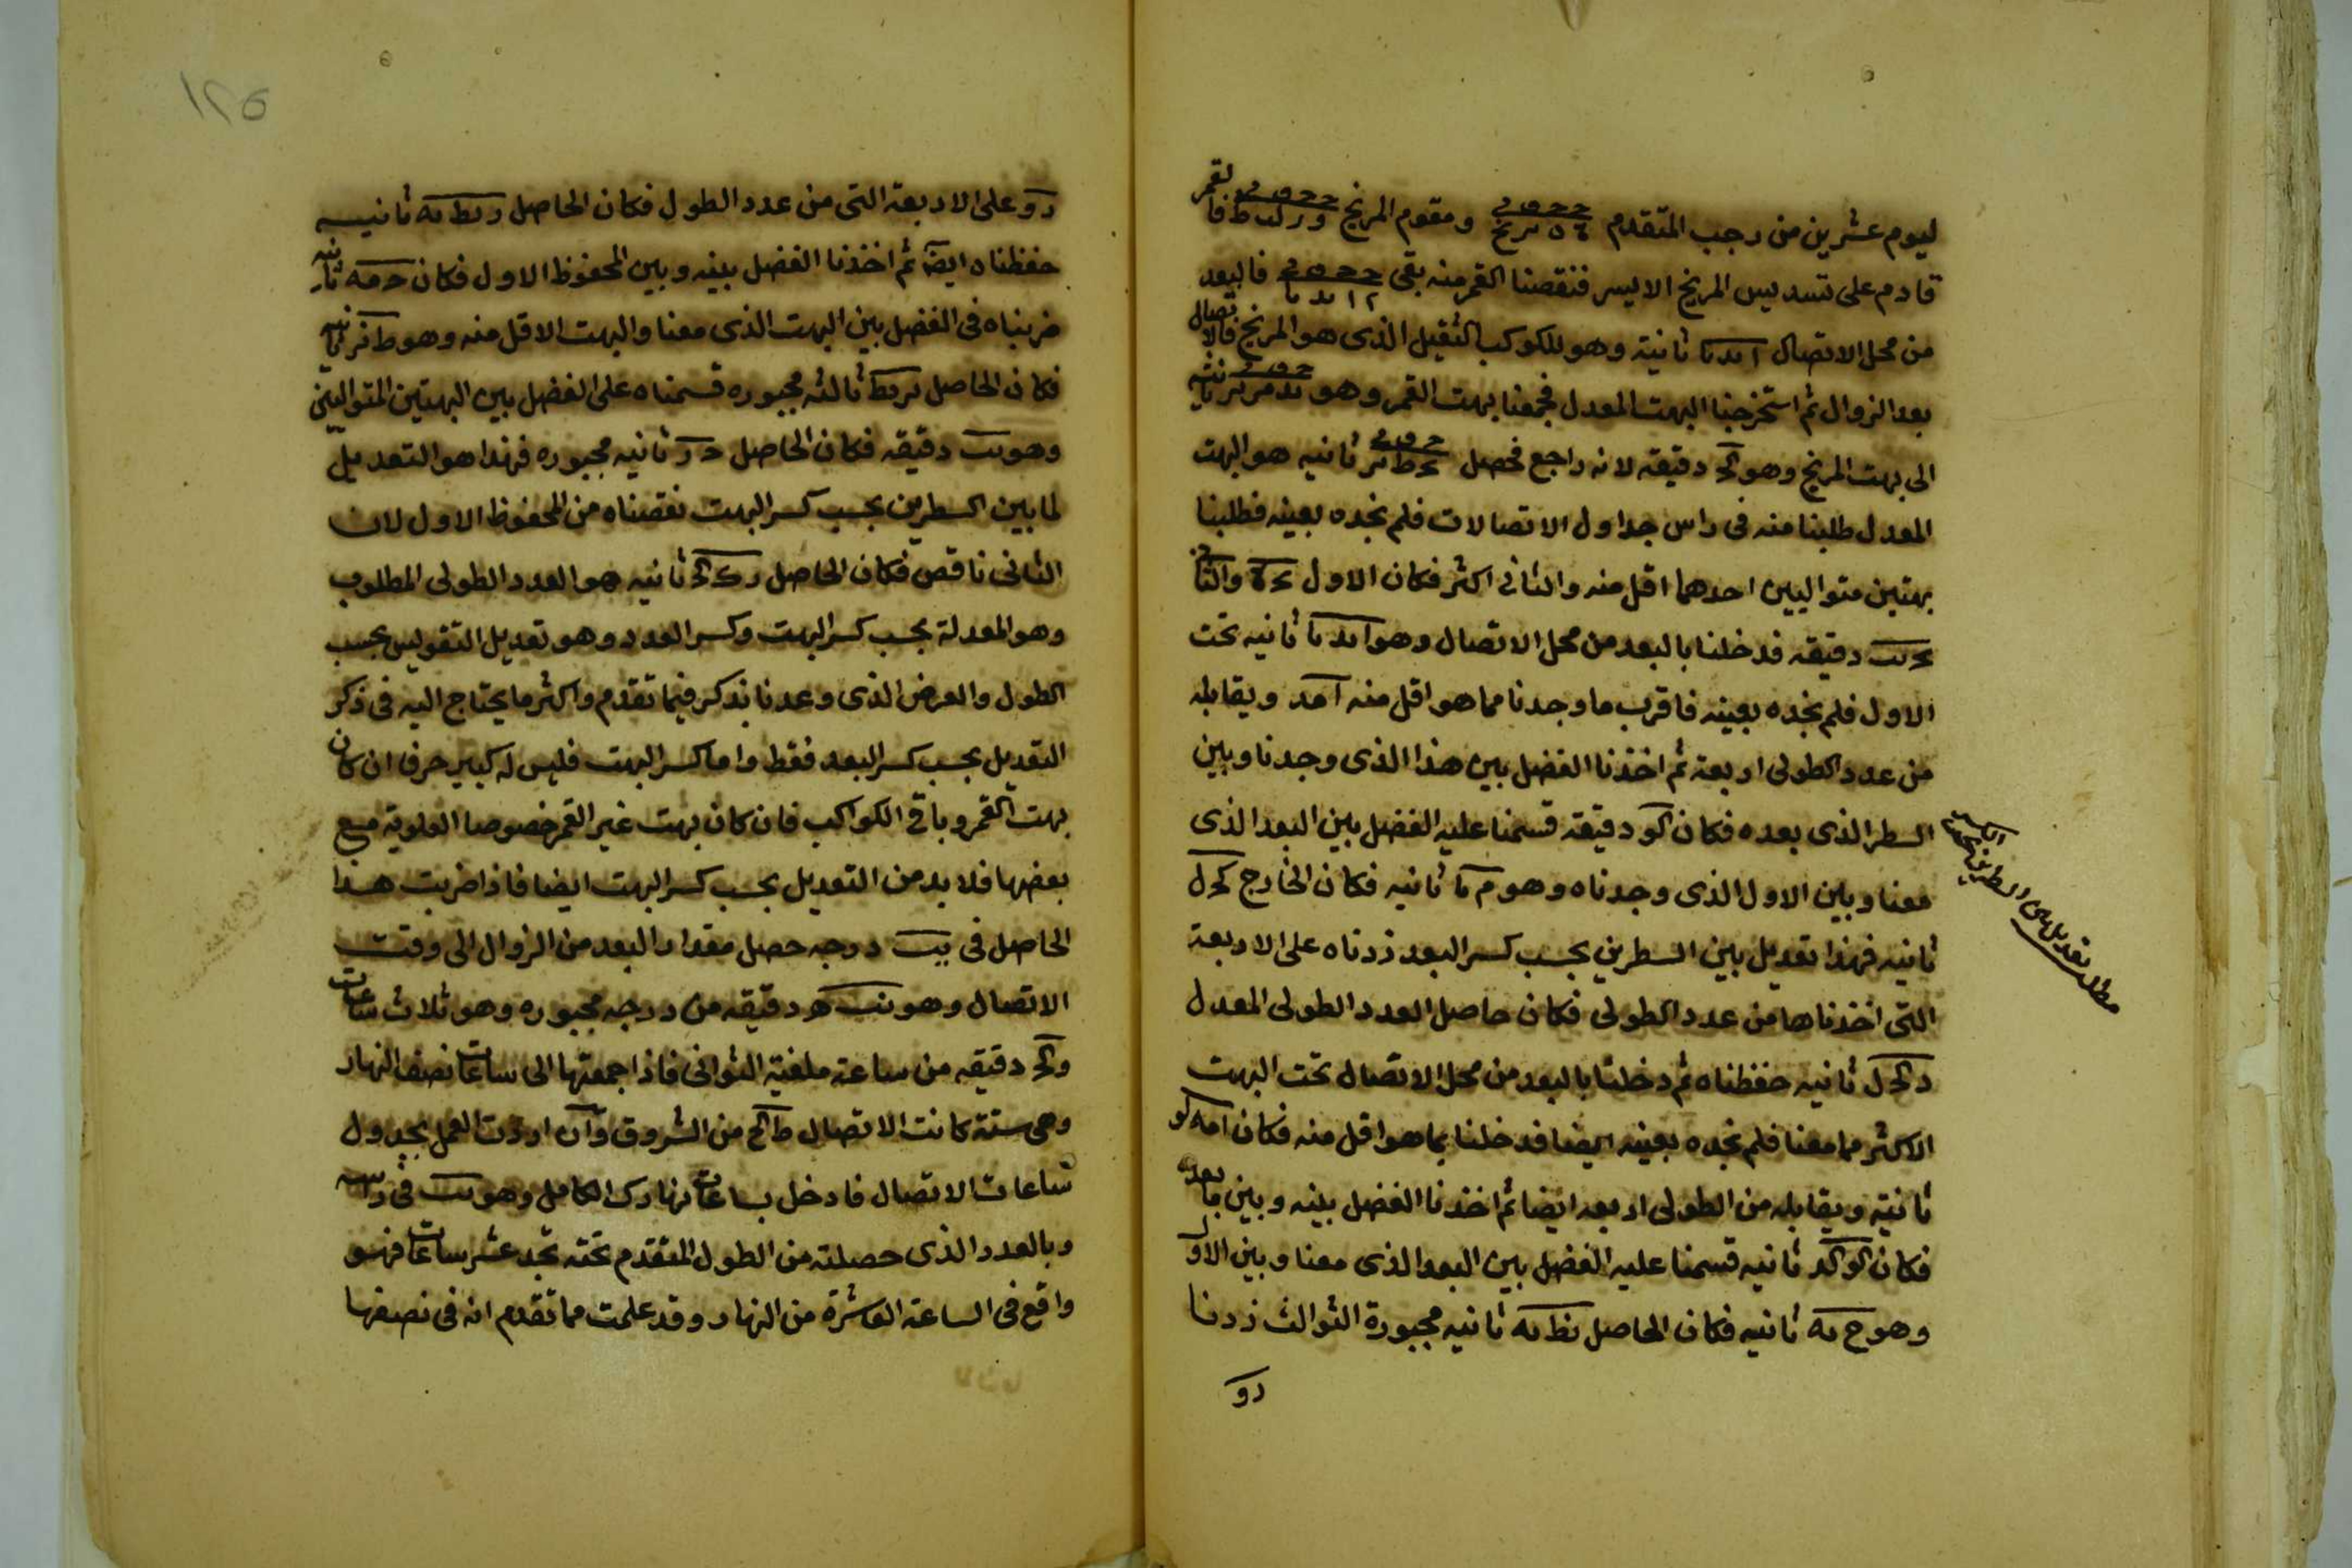 ليوم عشرين من رجب المتقدم ومقوم المريخ فالقمر
قادم على تسديس المريخ الايسر فنقصنا القمر منه بقى فالبعد
من محل الاتصال ا ىد ىا ثانية وهو للكوكب الثقيل الذى هو المريخ فالاتصال
بعد الزوال ثم استخرجنا البهت المعدل فجمعنا بهت القمر وهو ثانيه
الى بهت المريخ وهو دقيقه لانه راجع فحصل ثانيه هو البهت
المعدل طلبنا منه فى راس جداول الاتصالات فلم نجده بعينه فطلبنا
بهتين متواليين احدهما اقل منه والثانى اكثر فكان الاول والثانى
دقيقه فدخلنا بالبعد من محل الاتصال وهو ا ىد ىا ثانيه تحت
الاول فلم نجده بعينه فاقرب ما وجدنا مما هو اقل منه ويقابله
من عدد الطولى اربعة ثم اخذنا الفضل بين هذا الذى وجدنا وبين
السطر الذى بعده فكان كو دقيقه قسمنا عليه الفضل بين البعد الذى
معنا وبين الاول الذى وجدناه وهو ثانيه فكان الخارج
ثانيه فهذا تعديل بين السطرين بحسب كسر البعد زدناه على الاربعة
التى اخذناها من عدد الطولى فكان حاصل العدد الطولى المعدل
ثانيه حفظناه ثم دخلنا بالبعد من محل الاتصال تحت البهت
الاكثر مما معنا فلم نجده بعينه ايضا فدخلنا بما هو اقل منه فكان امه كو
ثانية ويقابله من الطولى اربعه ايضا ثم اخذنا الفضل بينه وبين ما بعده
فكان ثانيه قسمنا عليه الفضل بين البعد الذى معنا وبين الاول
وهو ح ىه ثانيه فكان الحاصل ىط ىه ثانيه مجبورة الثوالث زدنا
د و
مطلب تعديل بين السطرين
د و على الاربعة التى من عدد الطول فكان الحاصل د ىط ىه ثانيه
حفظناه ايضا ثم اخذنا الفضل بينه وبين المحفوظ الاول فكان ثانيه
ضربناه فى الفضل بين البهت الذى معنا والبهت الاقل منه وهو ثانيه
فكان الحاصل ثالثه مجبوره قسمناه على الفضل بين البهتين المتواليين
وهو ىب دقيقه فكان الحاصل ثانيه مجبوره فهذا هو التعديل
لما بين السطرين بحسب كسر البهت نقصناه من المحفوظ الاول لان
الثانى ناقص فكان الحاصل ثانيه هو العدد الطولى المطلوب
وهو المعدلة بحسب كسر البهت وكسر العدد وهو تعديل التقويس بحسب
الطول والعرض الذى وعدنا بذكر فيما تقدم واكثر ما يحتاج اليه فى ذكر
التعديل بحسب كسر البعد فقط واما كسر البهت فليس له كبير حرفا ان كان
بهت القمر وباقى الكواكب فان كان بهت غير القمر خصوصا العلوية مع
بعضها فلا بد من التعديل بحسب كسر البهت ايضا فاذا ضربت هذا
الحاصل فى يب درجه حصل مقدار البعد من الزوال الى وقت
الاتصال وهو نب دقيقه من درجه مجبوره وهو ثلاث ساعات
وكح دقيقه من ساعة ملغية الثوانى فاذا جمعتها الى ساعات نصف النهار
وهى ستة كانت الاتصال ط كح من الشروق وان اردت العمل بجدول
ساعات الاتصال فادخل بساعات نهارك الكامل وهو ىب فى راسه
وبالعدد الذى حصلته من الطول المتقدم تحته تجد عشر ساعات فهو
واقع فى الساعة العاشرة من النهار وقد علمت مما تقدم انه فى نصفها
١٢٥